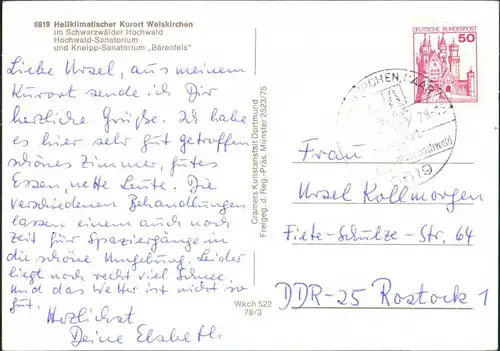 6619 Heilklimatischer Kurort Weiskirchen
im Schwarzwälder Hochwald
Hochwald-Sanatorium
und Kneipp-Sanatorium „Bärenfels"
Liebe Ursel, aus meinem
Kurort sende ich Dir
herzliche Grüße. Ich habe
es hier sehr gut getroffen,
schönes Zimmer, gutes
Essen, nette Leute. Die
verschiedenen Behandlungen
lassen einem auch noch
Zeit für Spaziergänge in
die schöne Umgebung. Leider
liegt noch recht viel Schnee
und das Wetter ist nicht so
gut.
Herzlichst
Deine Elsbeth
Cramers Kunstanstalt Dortmund
Freigeg. d. Reg.-Präs. Münster 2523/75
Wkch 522
78/3
DEUTSCHE BUNDESPOST
50
6619
Frau
Ursel Kollmorgen
Fiete-Schulze-Str. 64
DDR-25 Rostock 1